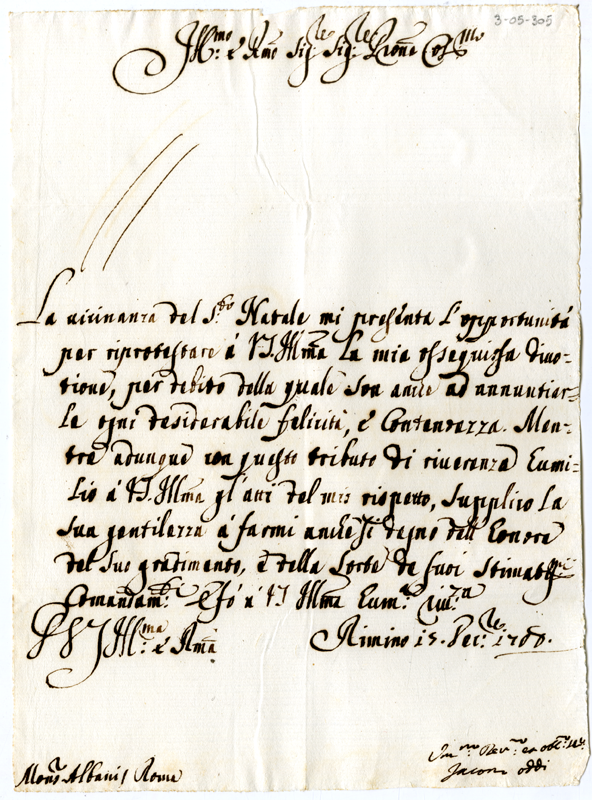 3-05-305
Ill.mo e Rmo Sig.re Sig.re Prone Col.mo
La vicinanza del S.to Natale mi presenta l'opportunità
per riprotestare à V.S. Illma la mia ossequiosa divo-
tione, per debito della quale son anche ad annuntiar-
le ogni desiderabile felicità, e Contentezza. Men-
tre adunque con questo tributo di riverenza Eumi-
lio à V.S. Illma gl'atti del mio rispetto, supplico la
sua gentilezza à farmi anche degno dell'Honore
del suo gradimento, e della sorte de suoi stimatiss.i
Comandam.ti E fò à V.S. Illma Hum.a Riu.za
D V S Ill.ma e Rma
Rimino 15. Dec.re 1700.
Mons.r Albani / Roma
Hum.mo Dev.mo et obl.mo Ser.
Jacom Oddi